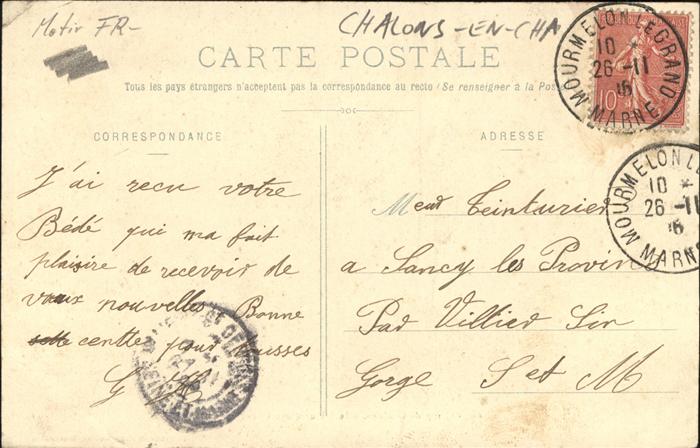 Motiv FR-
CHALONS-EN-CHA
CARTE POSTALE
Tous les pays étrangers n'acceptent pas la correspondance au recto (Se renseigner à la Poste
CORRESPONDANCE
ADRESSE
J'ai recu votre
Bédé qui ma fait
plaisire de recevoir de
vaux nouvelles Bonne
centte pour tousses
G
Meur Teinturier
a Sancy les Provins
Par Villier Sin
Gorge S et M
MOURMELON LE GRAND
10 *
26 -11
MARNE
10
MOURMELON LE
10 *
26 -11
MARNE